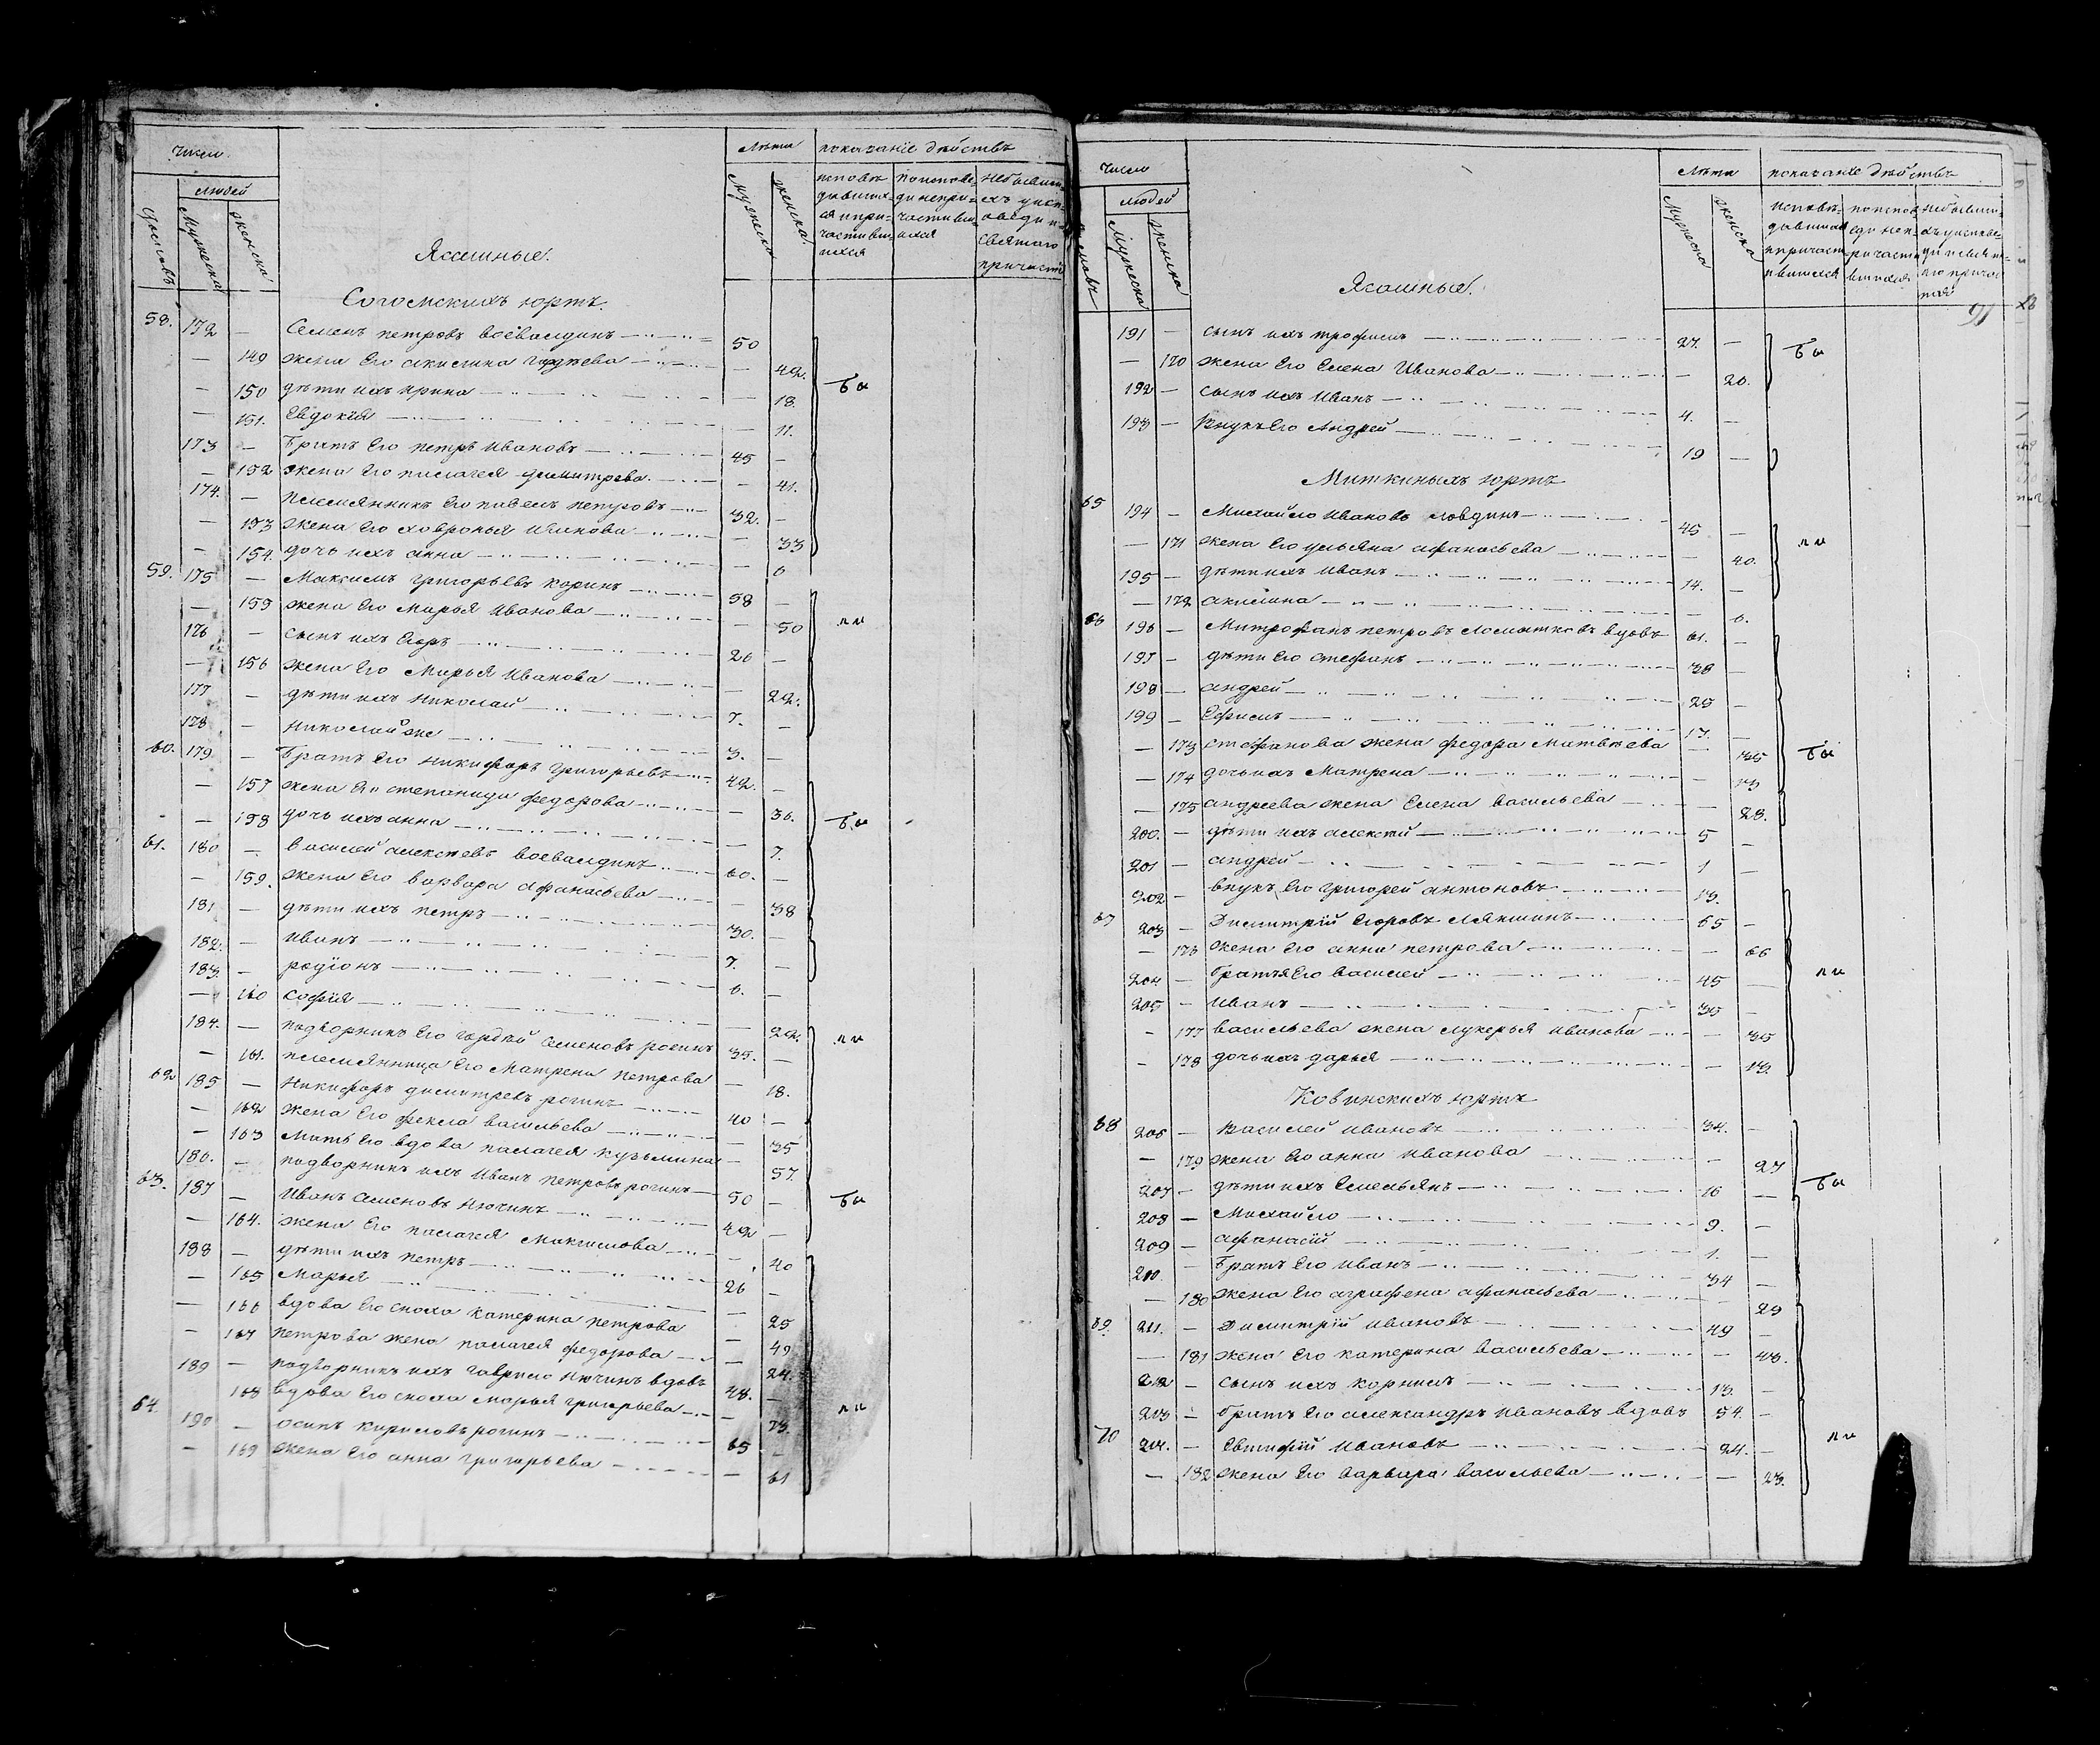 Число
людей
Домовъ
Мужеска
Женска
Ясашные.
Лѣта
Мужеска
Женска
показаніе дѣйствъ
исповѣ-
давших-
ся и при-
частив-
шихся
по испове-
ди непри-
частивш-
ихся
не бывши-
хъ у исп-
оведи и
святаго
причасті
Согомскихъ юртъ
58. 172 — Семенъ петровъ воеваидинъ 50
— 149 жена его акилина гордѣева — 42.
— 150 дѣти ихъ ирина — 18. бы
— 151. Евдокія — 11.
173 — братъ его петръ Ивановъ 45 —
— 152 жена его пилагея димитрева — 41.
174. — племянникъ его павелъ петровъ 32. —
— 153 жена его ховронья Иванова — 33
— 154. дочь ихъ анна — 6
59. 175 — Максимъ григорьевъ коринъ 58 —
— 155 жена его Марья Иванова — 50
176 — сынъ ихъ Егоръ 26 —
— 156 жена его Марья Иванова — 22.
177 — дѣти ихъ Николай 7. —
178 — Николай же 3. —
60. 179 — братъ его никифоръ григорьевъ 42. —
— 157 жена его степанида федорова — 36.
— 158 дочь ихъ анна — 7. бы
61. 180 — василей алексѣевъ воеваидинъ 60. —
— 159. жена его варвара афанасьева — 38
181 — дѣти ихъ петръ 30. —
182. — иванъ 7. —
183. — родіонъ 6. —
— 160 софія — 22.
184. — подворникъ его гордѣй семеновъ рогинъ 35. —
— 161. племянница его Матрена петрова — 18.
62 185 — Никифоръ димитревъ рогинъ 40 —
— 162 жена его фекла васильева — 35
— 163 Мать его вдова палагея кузьмина — 57.
186. — подворникъ ихъ Иванъ петровъ рогинъ 50 —
63. 187 — Иванъ семеновъ Нючинъ 42 — бы
— 164. жена его палагея Максимова — 40
188 — дѣти ихъ петръ 26 —
— 165 Марья — 25
— 166 вдова его сноха катерина петрова — 49
— 167 петрова жена палагея федорова — 24.
189 — подворникъ ихъ гаврило Нючинъ вдовъ 48. —
— 168 вдова его сноха марья григорьева — 73.
64. 190 — осипъ кириловъ рогинъ 65 —
— 169 жена его анна григорьева — 61
Число
людей
Мужеска
Женска
Ясашные.
Лѣта
Мужеска
Женска
показаніе дѣйствъ
91
191 — сынъ ихъ трофимъ 27. —
— 170 жена его Елена Иванова — 20. бы
192 — сынъ ихъ Иванъ 4. —
193 — внукъ его Андрей 19 —
Миткиныхъ юртъ
65 194 — Михайло Ивановъ ловдинъ 45 —
— 171 жена его ульяна афанасьева — 40.
195 — дѣти ихъ Иванъ 14. —
— 172 акилина — 6.
66 196 — Митрофанъ петровъ Ломатковъ вдовъ 61. —
197 — дѣти его стефанъ 38 —
198 — андрей 25 —
199 — Ефимъ 17. —
— 173 стефанова жена федора Матвѣева — 35 бы
— 174 дочь ихъ Матрена — 13
— 175 андреева жена Елена васильева — 28.
200. — дѣти ихъ алексѣй 5 —
201 — андрей 1 —
202 — внукъ его григорей антоновъ 13.
67 203 — Димитрій Егоровъ Лякшинъ 65 —
— 176 жена его анна петрова — 66
204 — братья его василей 45 —
205 — Иванъ 30 —
— 177 васильева жена лукерья Иванова — 35
— 178 дочь ихъ дарья — 13.
Ковинскихъ юртъ
68 206 — василей Ивановъ 34. —
— 179 жена его анна Иванова — 27
207 — дѣти ихъ Емельянъ 16 — бы
208 — Михайло 9. —
209 — афанасій 1. —
210 — братъ его иванъ 34 —
— 180 жена его аграфена афанасьева — 29
69. 211. — димитрій ивановъ 49 —
— 181 жена его катерина васильева — 43.
212 — сынъ ихъ корнилъ 13. —
213 — братъ его александръ ивановъ вдовъ 54. —
70 214. — Евтифій Ивановъ 24. —
— 182 жена его варвара васильева — 23.